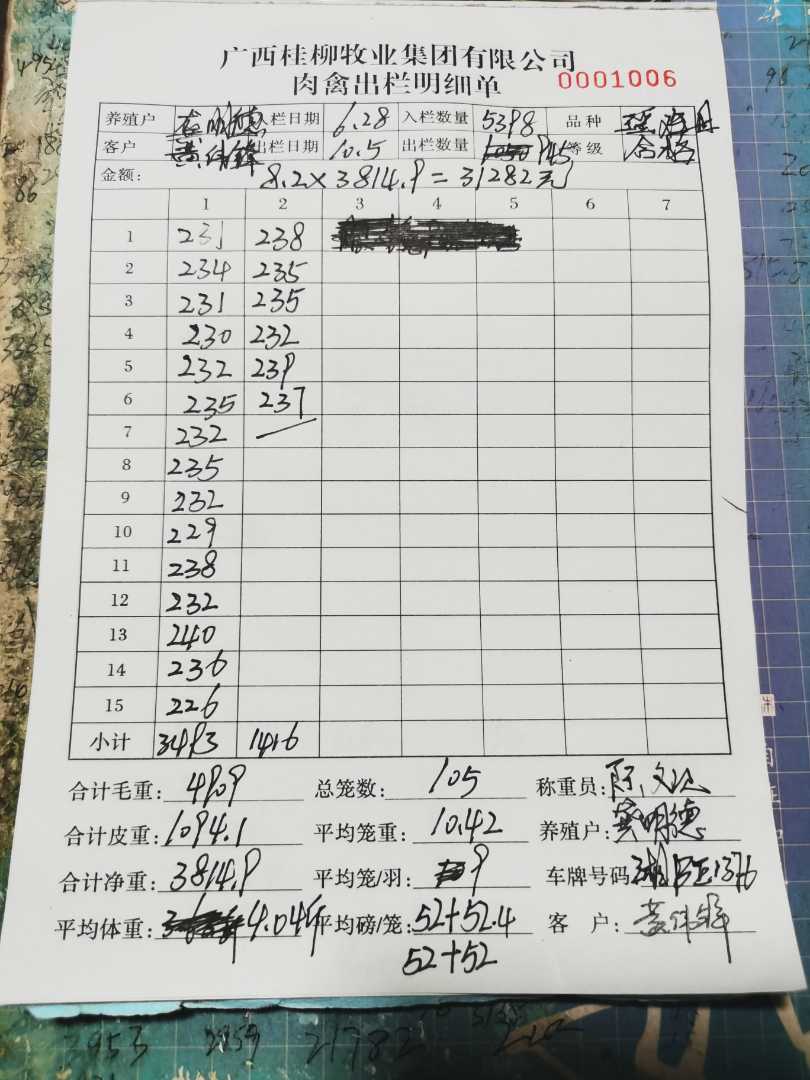 广西桂柳牧业集团有限公司
肉禽出栏明细单 0001006
养殖户 入栏日期 6.28 入栏数量 5398 品种
客户 黄伟锋 出栏日期 10.5 出栏数量 945 等级 合格
金额: 8.2×3814.9=31282元
1 2 3 4 5 6 7
1 231 238
2 234 235
3 231 235
4 230 232
5 232 239
6 235 237
7 232
8 235
9 232
10 229
11 238
12 232
13 240
14 236
15 226
小计 3493 1416
合计毛重: 4909 总笼数: 105 称重员:
合计皮重: 1094.1 平均笼重: 10.42 养殖户: 明德
合计净重: 3814.9 平均笼/羽: 9 车牌号码 1376
平均体重: 4.04斤 平均磅/笼: 52+52.4 客 户: 黄伟锋
52+52
3953 2959 21782